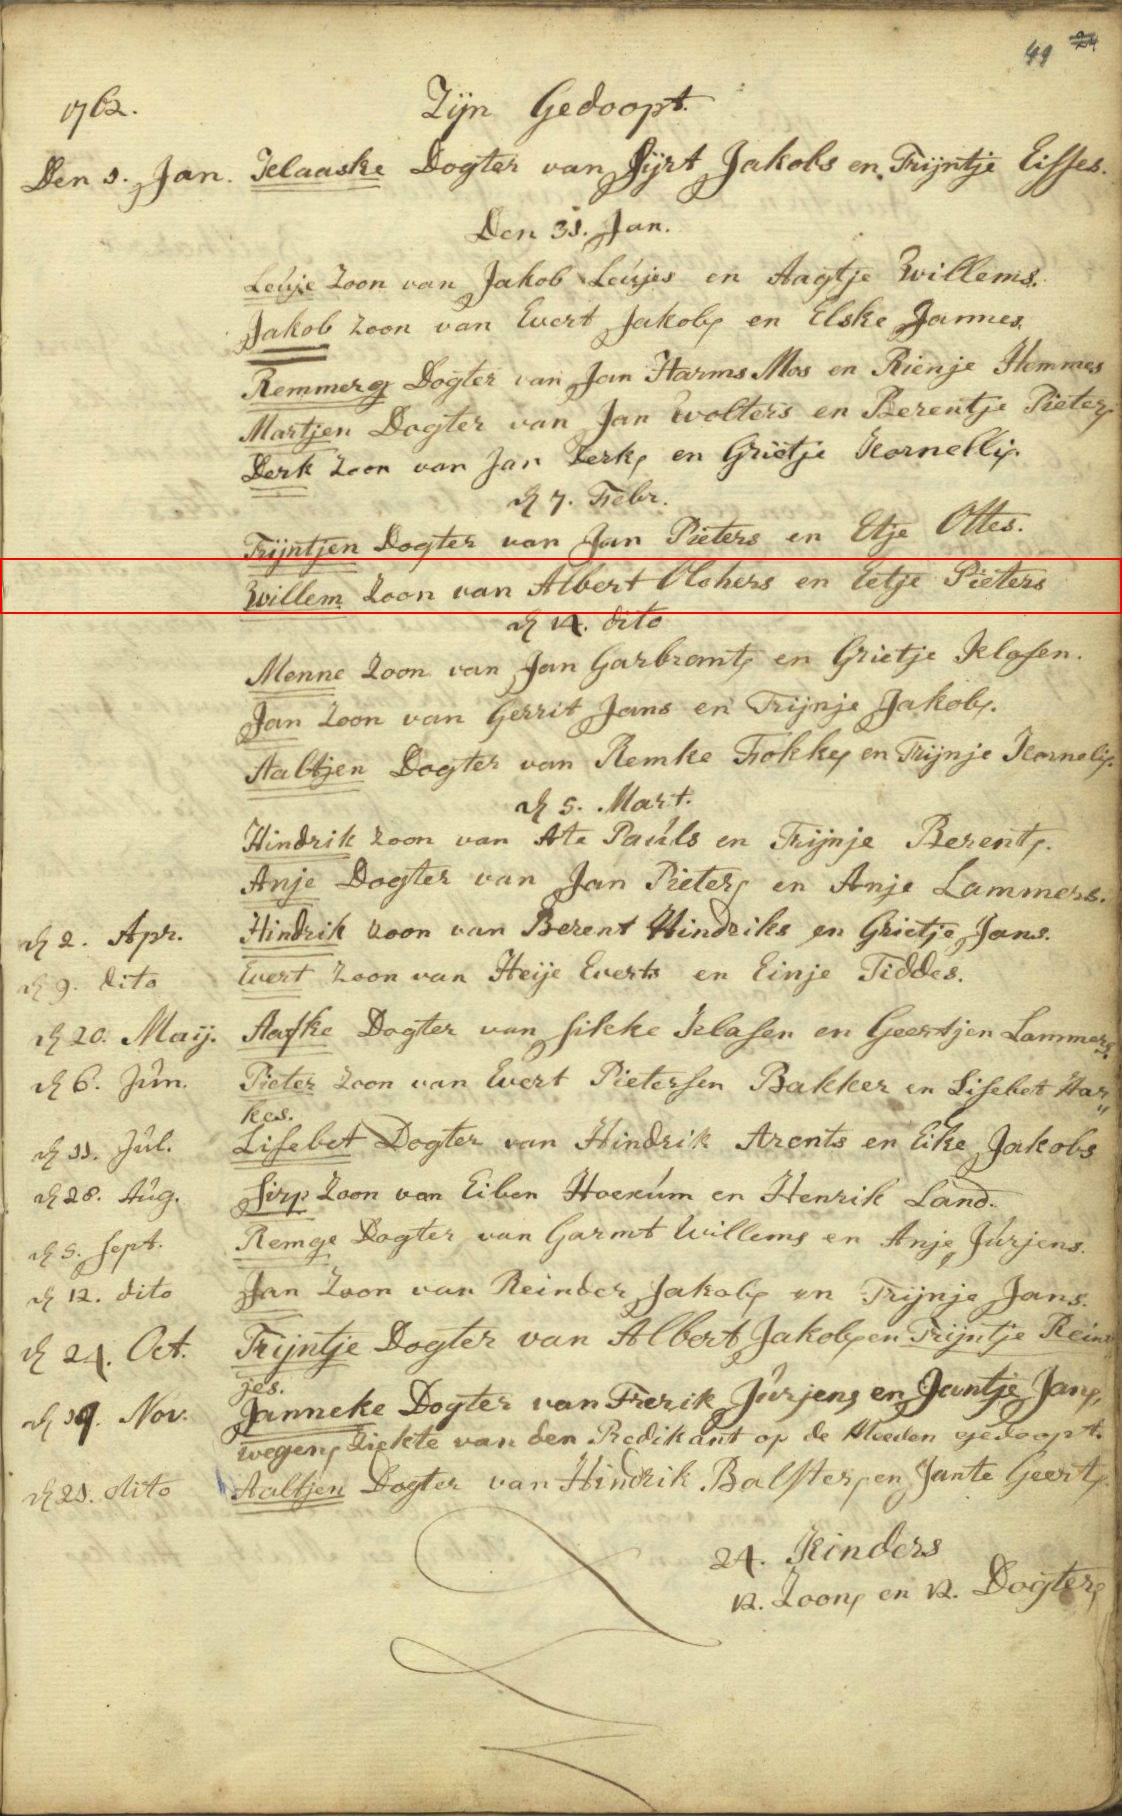 49 24
1762. Zijn Gedoopt.
Den 1. Jan. Klaaske Dogter van Sijrt Jakobs en Trijntje Eisses.
Den 31. Jan.
Leuje Zoon van Jakob Leujes en Aagtje Willems.
Jakob Zoon van Evert Jakobs en Elske Jannes
Remmerg Dogter van Jan Harms Mos en Rienje Hemmes
Martjen Dogter van Jan Wolters en Berentje Pieters
Derk Zoon van Jan Derks en Grietje Kornellis.
den 7. Febr.
Trijntjen Dogter van Jan Pieters en Etje Ottes.
Willem Zoon van Albert Olchers en Eetje Pieters
den 14. dito
Menne Zoon van Jan Garbrants en Grietje Klasen.
Jan Zoon van Gerrit Jans en Trijnje Jakobs.
Aaltjen Dogter van Remke Fokkes en Trijnje Kornelis.
den 5. Mart.
Hindrik Zoon van Ate Pauls en Trijnje Berents.
Anje Dogter van Jan Pieters en Anje Lammers.
den 2. Apr. Hindrik Zoon van Berent Hindriks en Grietje Jans.
den 9. dito Evert Zoon van Heije Everts en Einje Tiddes.
den 20. Maij. Aafke Dogter van Sikke Klasen en Geertjen Lammers.
den 6. Jun. Pieter Zoon van Evert Pietersen Bakker en Lisebet Har„
kes.
den 11. Jul. Lisebet Dogter van Hindrik Arents en Eike Jakobs
den 28. Aug. Sirp Zoon van Eiben Hoekum en Henrik Land.
den 5. Sept. Remge Dogter van Garmt Willems en Anje Jurjens.
den 12. dito Jan Zoon van Reinder Jakobs en Trijnje Jans.
den 24. Oct. Trijntje Dogter van Albert Jakobs en Trijntje Rein„
jes.
den 19. Nov. Janneke Dogter van Frerik Jurjens en Jantje Jans,
wegens Ziekte van den Predikant op de Meeden gedoopt.
den 21. dito Aaltjen Dogter van Hindrik Balsters en Jante Geerts.
24. Kinders
12. Zoons en 12. Dogters